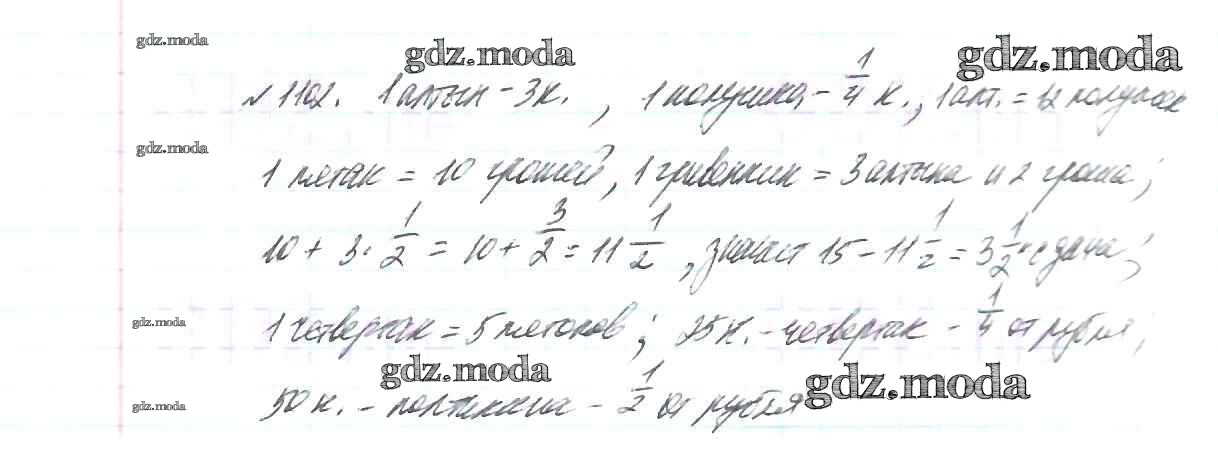 gdz.moda gdz.moda gdz.moda
№ 1102. 1 алтын - 3 к. , 1 полушка - 1/4 к. , 1 алт. = 12 полушек
gdz.moda
1 пятак = 10 грошей, 1 гривенник = 3 алтына и 2 гроша;
10 + 3 · 1/2 = 10 + 3/2 = 11 1/2 , значит 15 - 11 1/2 = 3 1/2 к сдача;
gdz.moda
1 четвертак = 5 пятаков; 25 к. - четвертак - 1/4 от рубля;
gdz.moda gdz.moda
gdz.moda
50 к. - полтинник - 1/2 от рубля